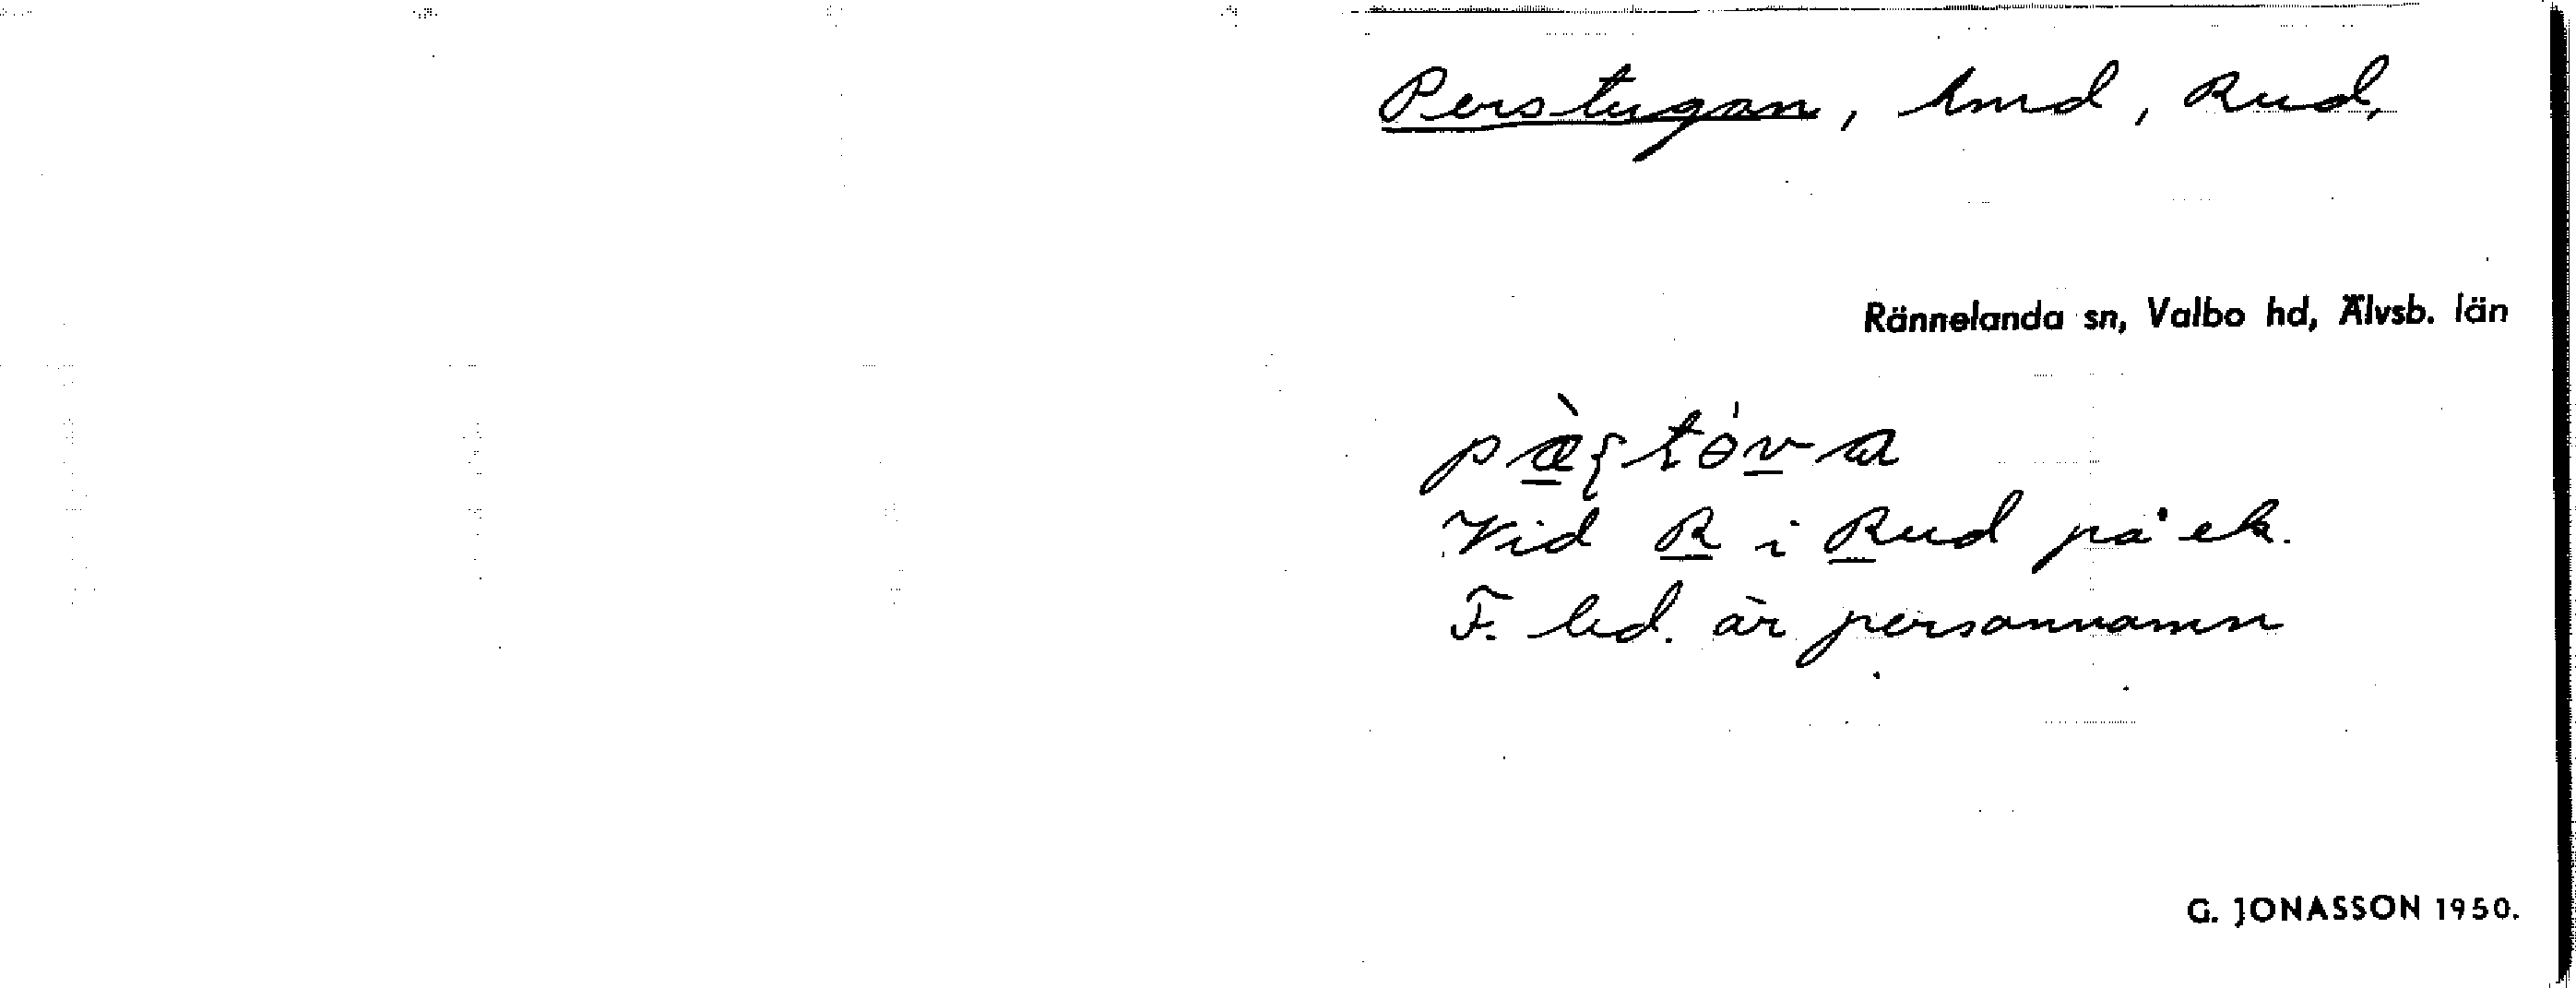 Perstugan, hmd, Rud.
Rännelanda sn, Valbo hd, Älvsb. län
Vid R i Rud på ek.
F. led. är personnamn
G. JONASSON 1950.